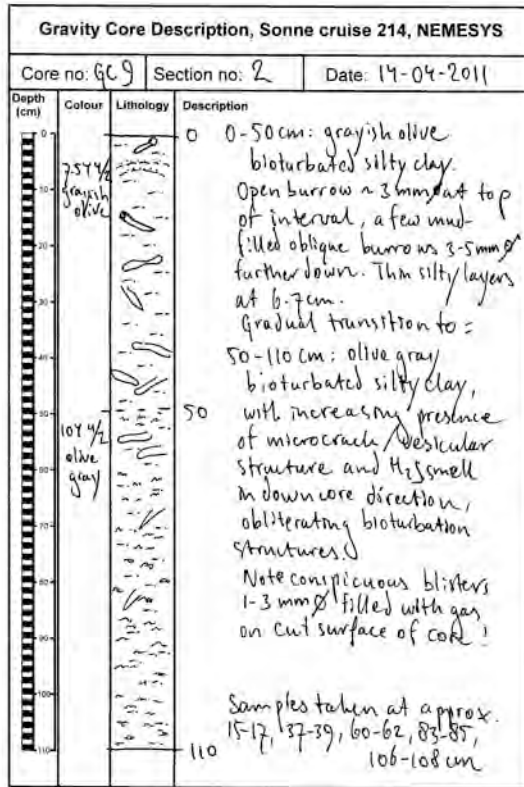 Gravity Core Description, Sonne cruise 214, NEMESYS
Core no: GC9 Section no: 2 Date: 14-04-2011
Depth (cm) Colour Lithology Description
0
10
20
30
40
50
60
70
80
90
100
110
7.5Y 4/2
grayish
olive
10Y 4/2
olive
gray
0
50
110
0-50cm: grayish olive
bioturbated silty clay.
Open burrow ~ 3mmø at top
of interval, a few mud-
filled oblique burrows 3-5mmø
further down. Thin silty layers
at 6-7cm.
Gradual transition to:
50-110 cm: olive gray
bioturbated silty clay,
with increasing presence
of microcrack/vesicular
structure and H2S smell
in down core direction,
obliterating bioturbation
structures.
Note conspicuous blisters
1-3 mmø filled with gas
on cut surface of core!
Samples taken at approx.
15-17, 37-39, 60-62, 83-85,
106-108 cm